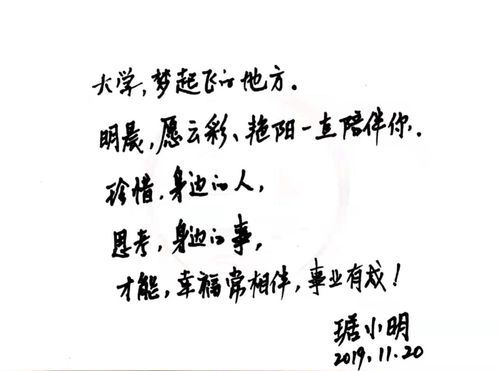 大学，梦起飞的地方。
明晨，愿云彩、艳阳一直陪伴你。
珍惜，身边的人，
思考，身边的事，
才能，幸福常相伴，事业有成！
琚小明
2019.11.20